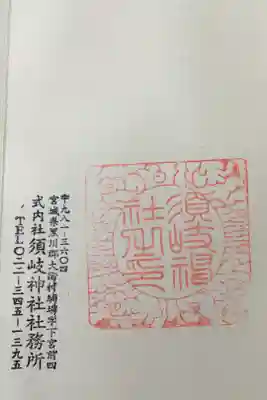 須岐神
社之印
〒九八一―三六〇四
宮城県黒川郡大衡村駒場字下宮前四
式内社須岐神社社務所
TEL〇二二―三四五―一三九五